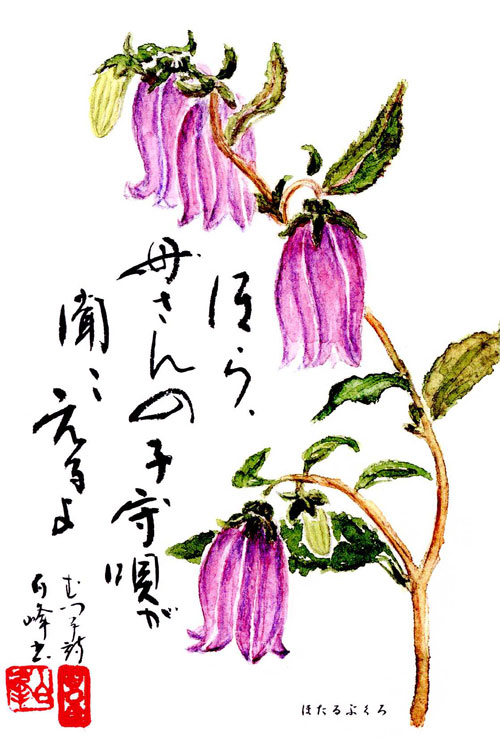 ほら、
母さんの子守唄が
聞こえるよ
むつ子詩
白峰書
ほたるぶくろ